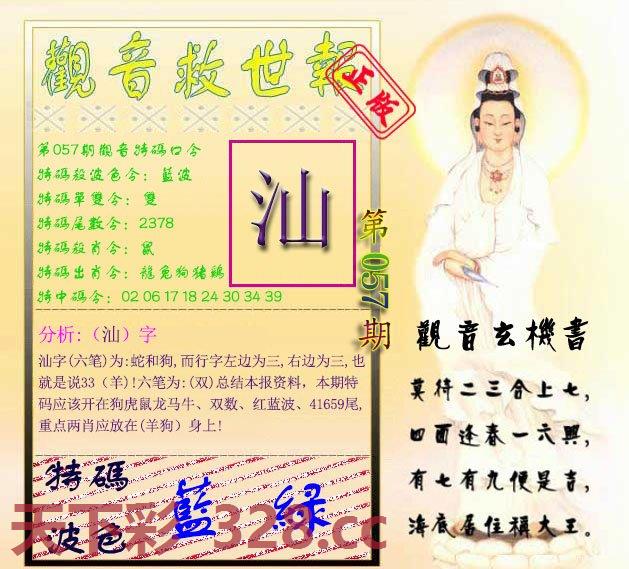 觀音救世報
正版
第057期觀音特碼口令
特碼殺波色令：藍波
特碼單雙令：雙
特碼尾數令：2378
特碼殺肖令：鼠
特碼出肖令：龍兔狗猪鷄
特中碼令：02 06 17 18 24 30 34 39
汕
第057期
分析:（汕）字
汕字(六笔)为:蛇和狗,而行字左边为三,右边为三,也
就是说33（羊)!六笔为:(双)总结本报资料，本期特
码应该开在狗虎鼠龙马牛、双数、红蓝波、41659尾,
重点两肖应放在(羊狗）身上!
特碼
波色
藍 緑
天下彩 328.cc
觀音玄機書
莫待二三合上七，
四面逢春一六興，
有七有九便是吉，
海底居住稱大王。